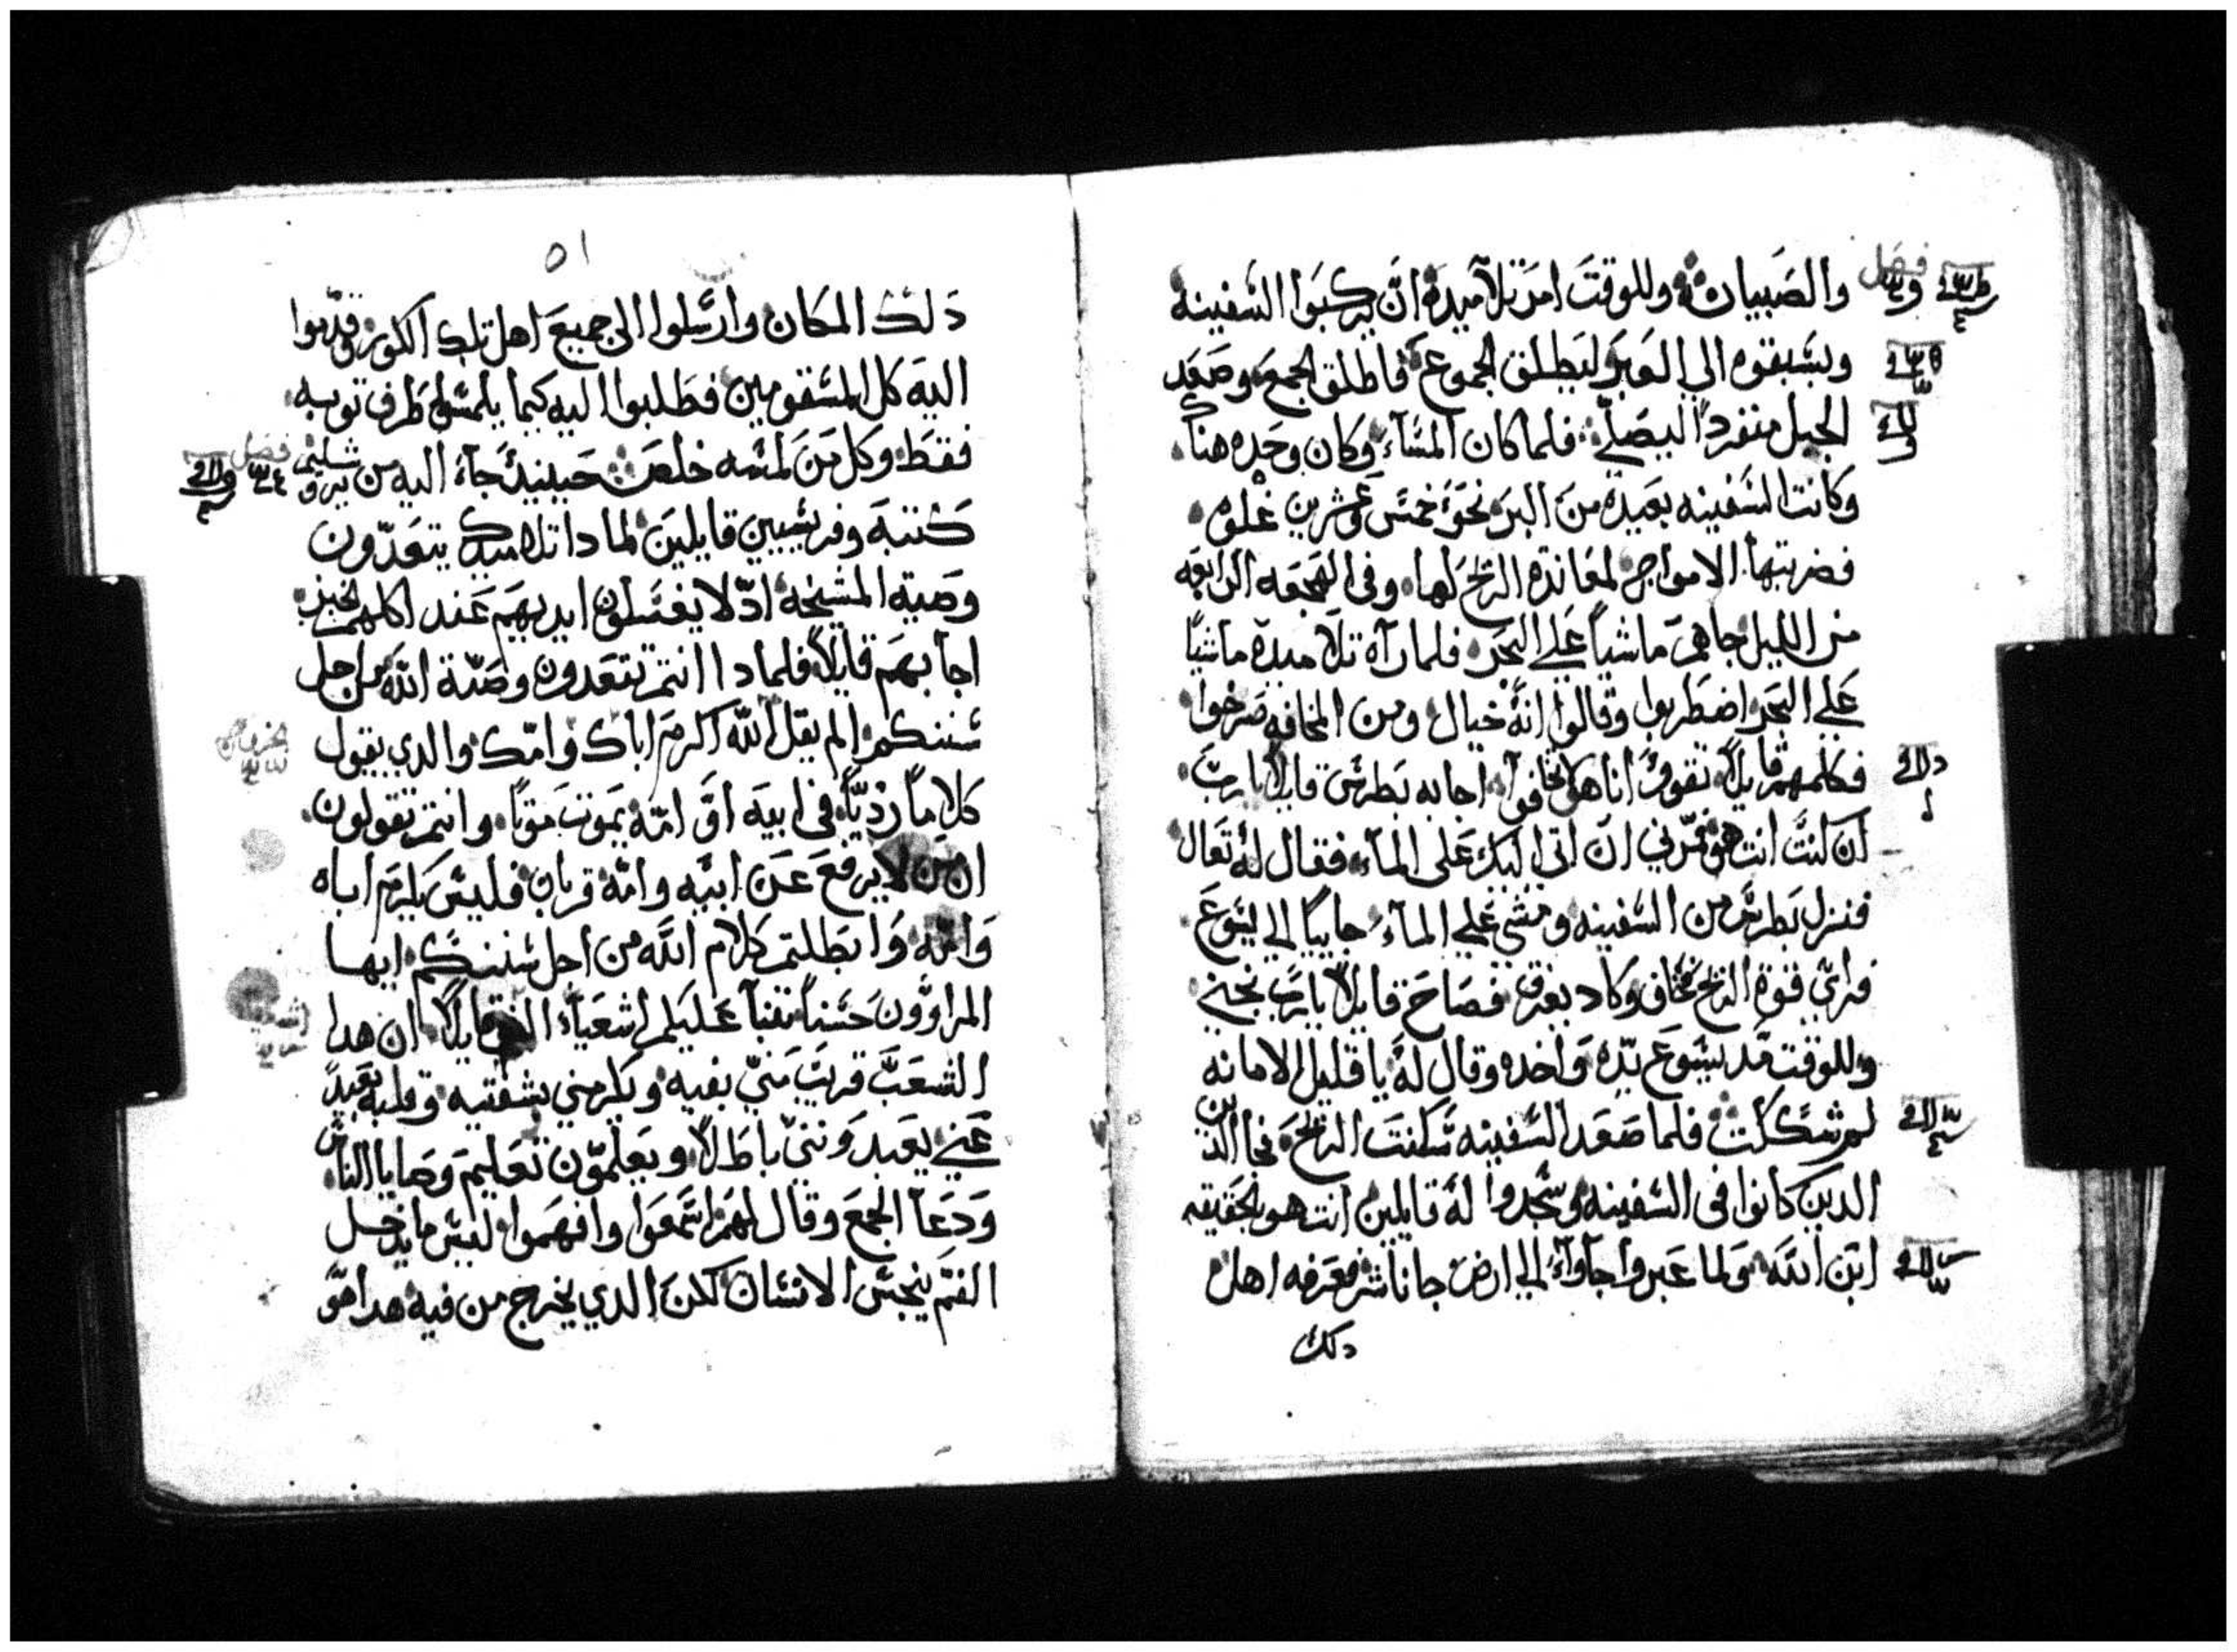 والصبيان وللوقت امر تلاميده ان يركبوا السفينه
ويسبقوه الي العبر ليطلق الجموع فاطلق الجمع وصعد
الجبل منفردًا ليصلي فلما كان المساء وكان وحده هناك
وكانت السفينه بعيده من البر نحو خمس وعشرين غلوه
فضربتها الامواج لمعاندة الريح لها وفي الهجعه الرابعه
من الليل جاهم ماشيًا علي البحر فلما راة تلاميده ماشيًا
علي البحر اضطربوا وقالوا انه خيال ومن المخافه صرخوا
فكلمهم قايلًا تقووا انا هو لا تخافوا اجابه بطرس قايلًا يا رب
ان كنت انت هو فمرني ان اتي اليك علي الماء فقال له تعال
فنزل بطرس من السفينه ومشي علي الماء جاييًا الي يسوع
فراي قوة الريح فخاف وكاد يغرق فصاح قايلًا يا رب نجني
وللوقت مد يسوع يده واخده وقال له يا قليل الامانه
لم شككت فلما صعد السفينه سكنت الريح فجا
الدين كانوا في السفينه وسجدوا له قايلين انت هو بالحقيقه
ابن الله ولما عبروا جاوا الي ارض جاناشر فعرفه اهل
دلك
٥١
دلك المكان وارسلوا الي جميع اهل تلك الكوره وقدموا
اليه كل المسقومين فطلبوا اليه كيما يلمسوا طرف توبه
فقط وكل من لمسه خلص حينيد جاء اليه من يروشليم
فصل
كتبة وفريسيين قايلين لمادا تلاميدك يتعدون
وصية المشيخه اد لا يغسلون ايديهم عند اكلهم الخبز
اجابهم قايلًا فلمادا انتم تتعدون وصية الله من اجل
سننكم الم يقل الله اكرم اباك وامك والدي يقول
كلامًا رديًا في ابيه او امه يموت موتًا وانتم تقولون
ان من لا يرفع عن ابيه وامه قربان فليس يكرم اباه
وامه وابطلتم كلام الله من اجل سننكم ايها
المراوون حسنًا تنبا عليكم اشعياء النبي قايلًا ان هدا
الشعب قريب مني بفيه ويكرمني بشفتيه وقلبه بعيد
عني يعبدونني باطلًا ويعلمون تعليم وصايا الناس
ودعا الجمع وقال لهم اسمعوا وافهموا ليس ما يدخل
الفم ينجس الانسان لكن الدي يخرج من فيه هدا هو